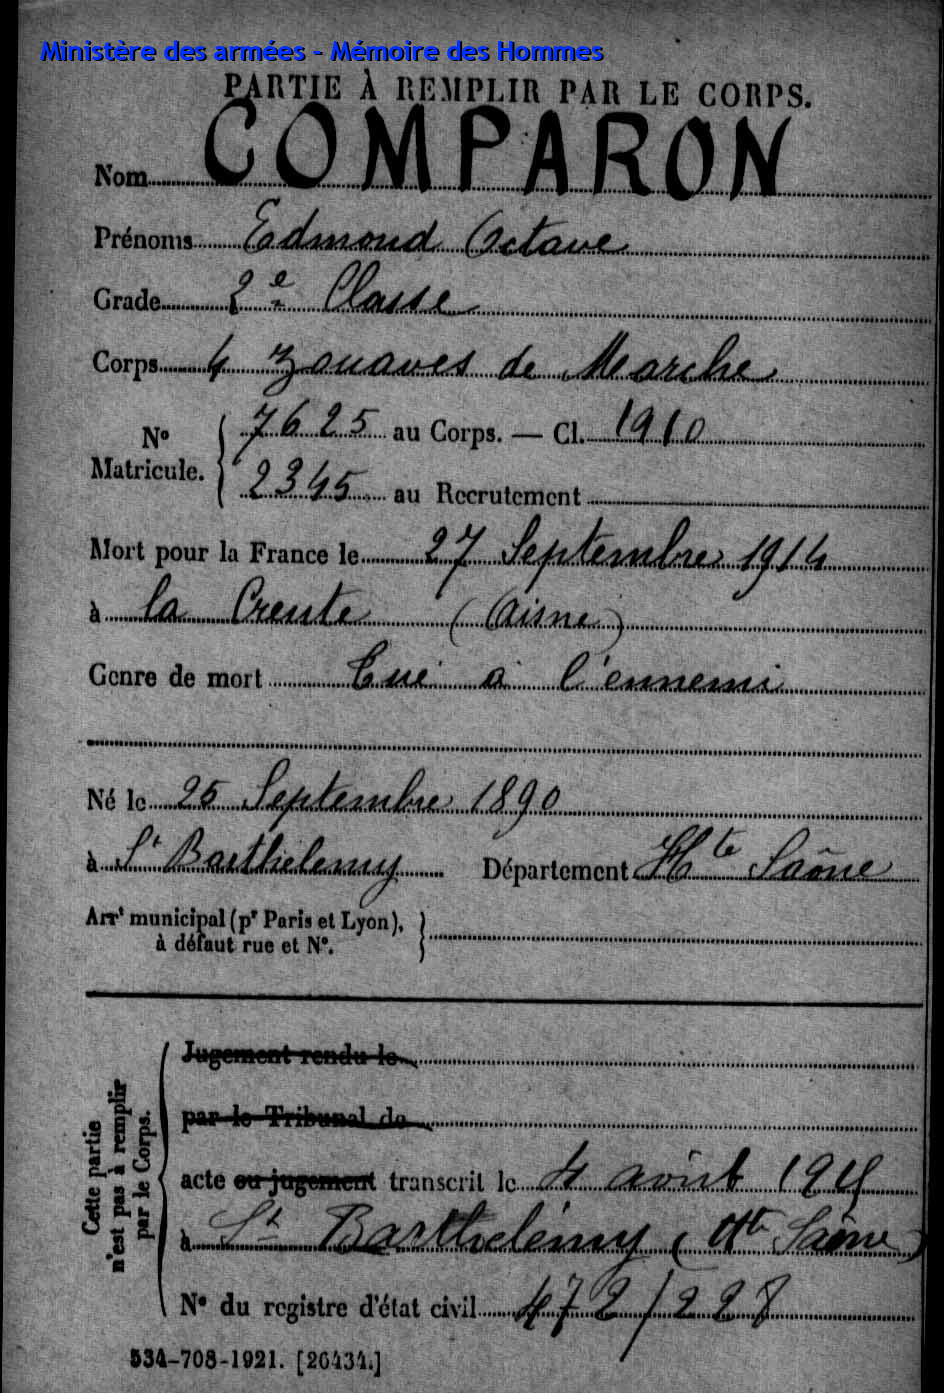 Ministère des armées - Mémoire des Hommes
PARTIE À REMPLIR PAR LE CORPS.
Nom COMPARON
Prénoms Edmond Octave
Grade 2e Classe
Corps 4 Zouaves de Marche
No Matricule. { 7625 au Corps. — Cl. 1910
2345 au Recrutement
Mort pour la France le 27 Septembre 1914
à la Creute (Aisne)
Genre de mort Tué à l'ennemi
Né le 25 Septembre 1890
à St Barthelemy Département Hte Saône
Arrt municipal (pr Paris et Lyon),
à défaut rue et No.
Cette partie
n'est pas à remplir
par le Corps.
Jugement rendu le
par le Tribunal de
acte ou jugement transcrit le 4 août 1915
à St Barthelémy (Hte Saône)
No du registre d'état civil 472/228
534-708-1921. [26434.]